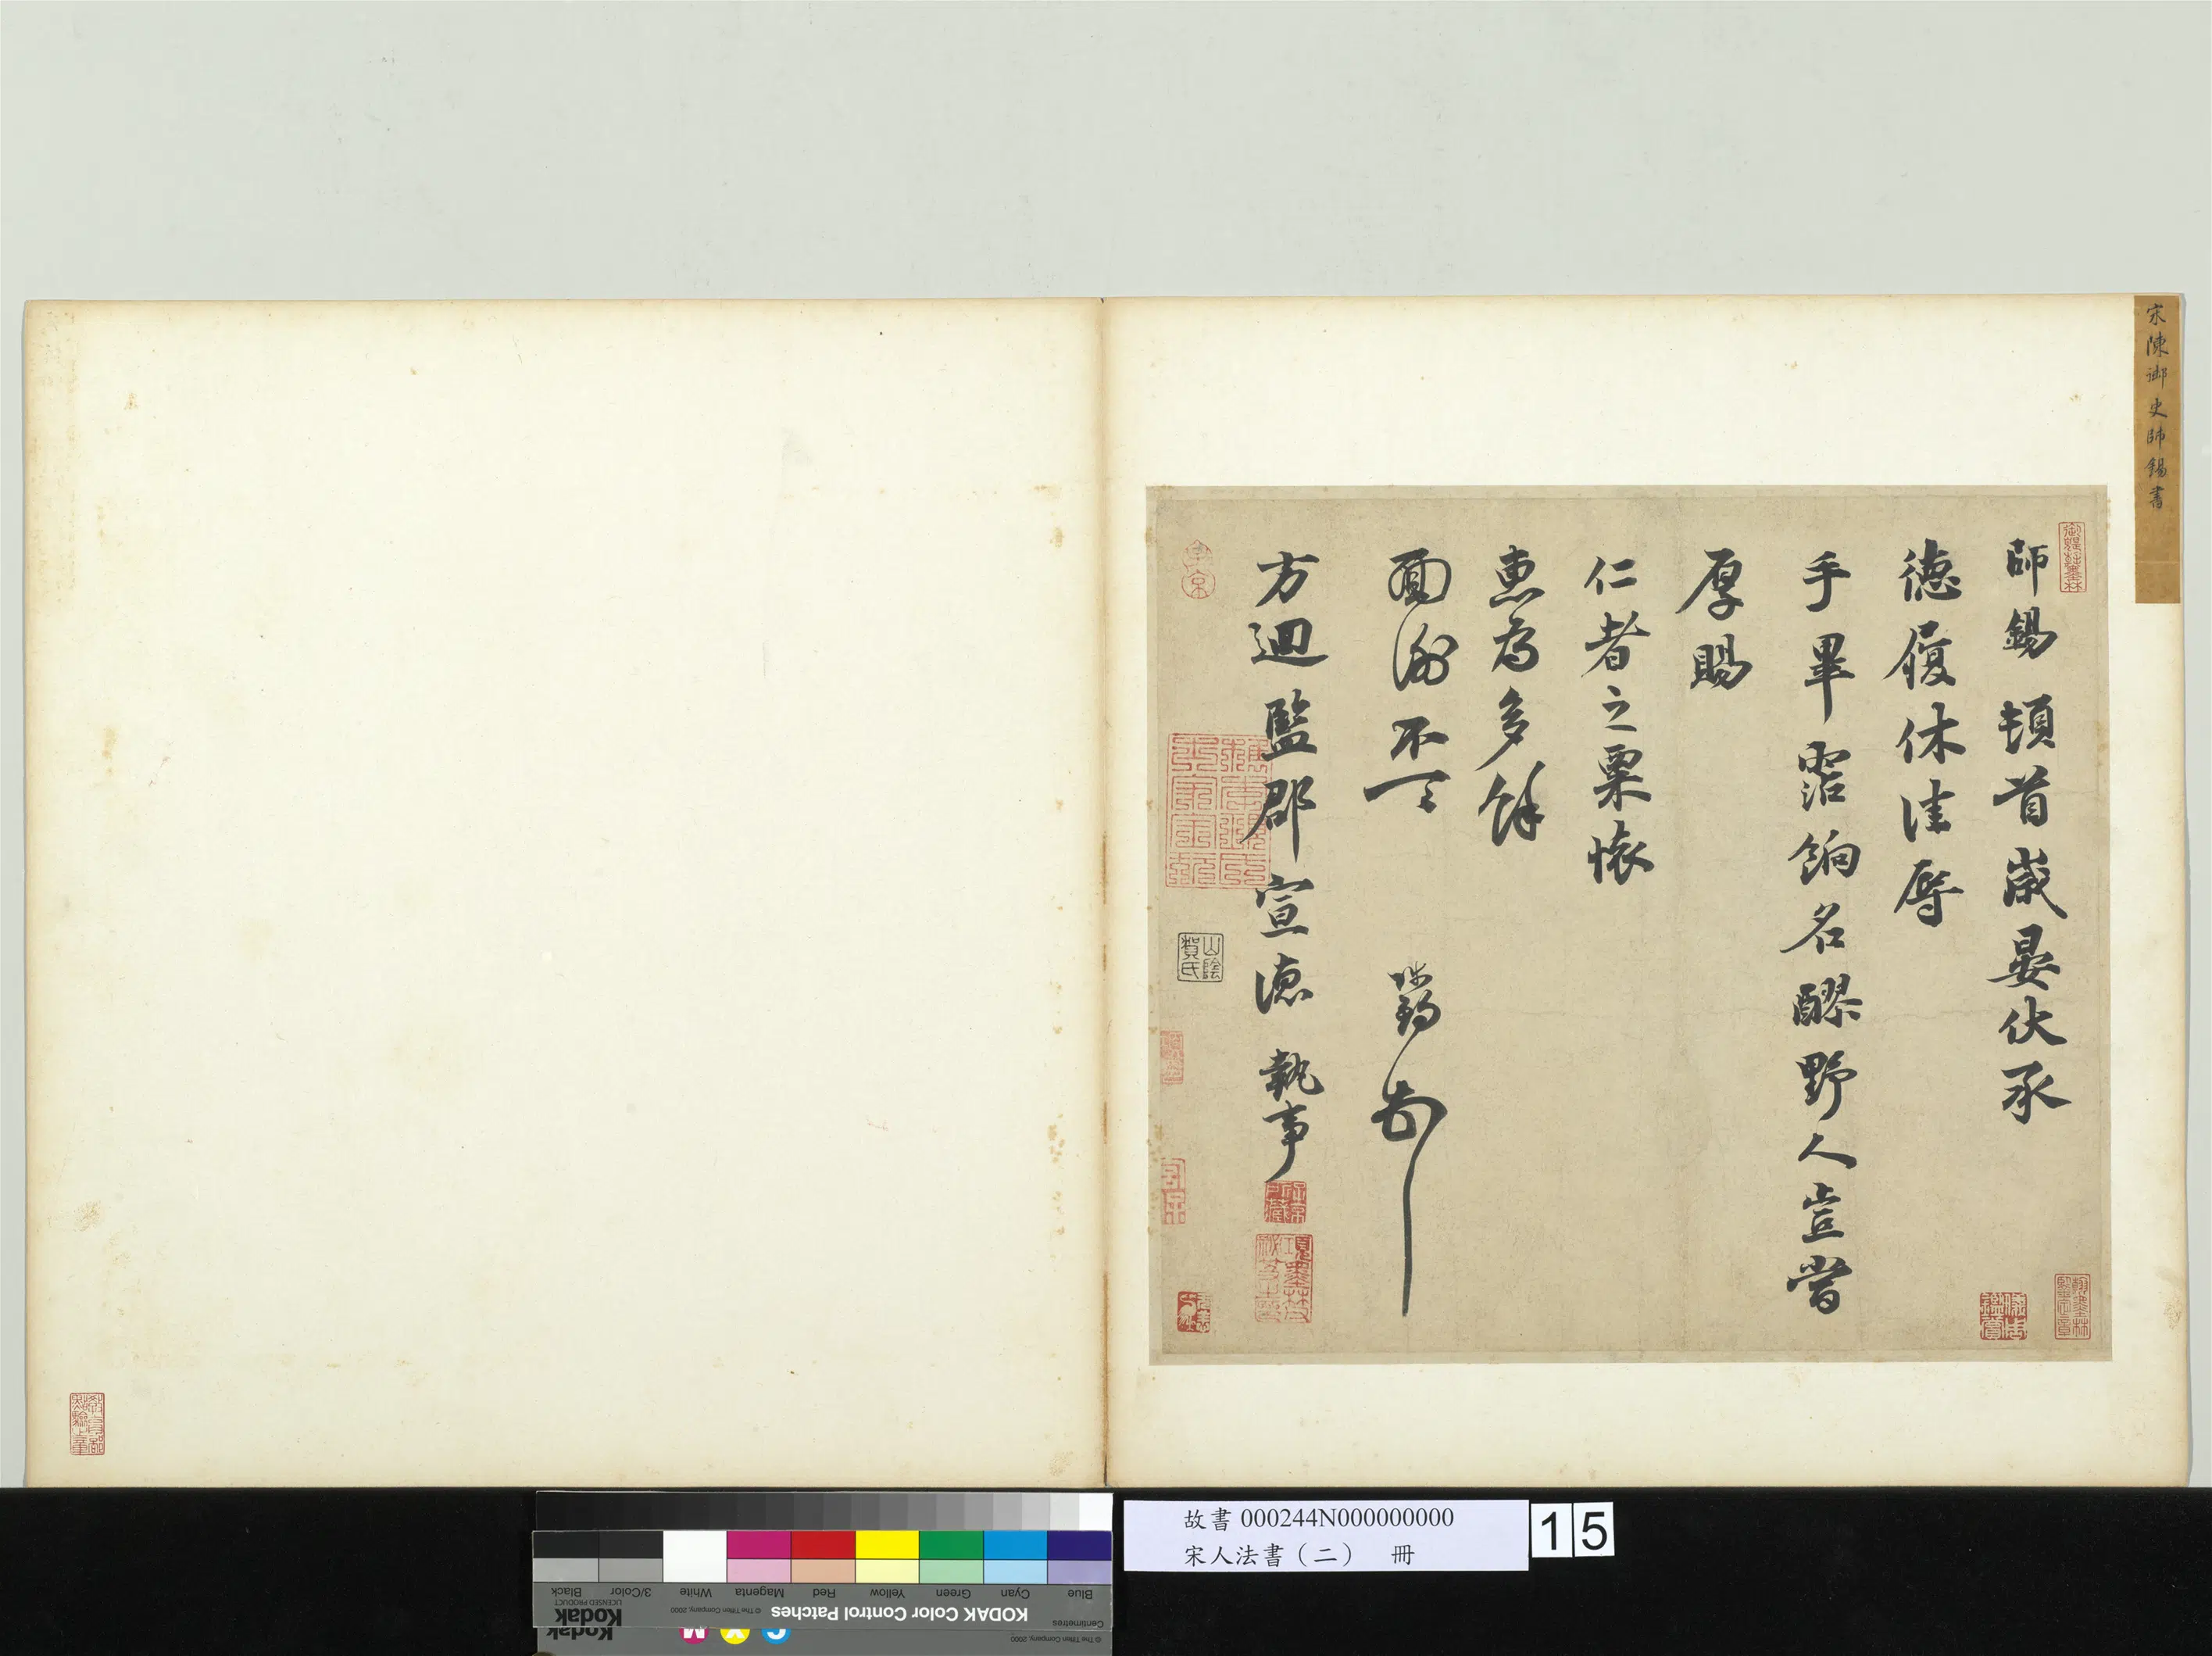 宋陳御史師錫書
師錫頓首歲晏伏承
德履休佳辱
手畢霑餉名醪野人豈嘗
厚賜
仁者之粟懷
惠為多餘
面謝不一一 師錫
方迴監郡宣德 執事
山陰賀氏
故書 000244N000000000
宋人法書（二） 冊
15
KODAK Color Control Patches
© The Tiffen Company, 2000
Kodak
LICENSED PRODUCT
Centimetres
Blue Cyan Green Yellow Red Magenta White 3/Color Black
© The Tiffen Company, 2000
Kodak
C Y M